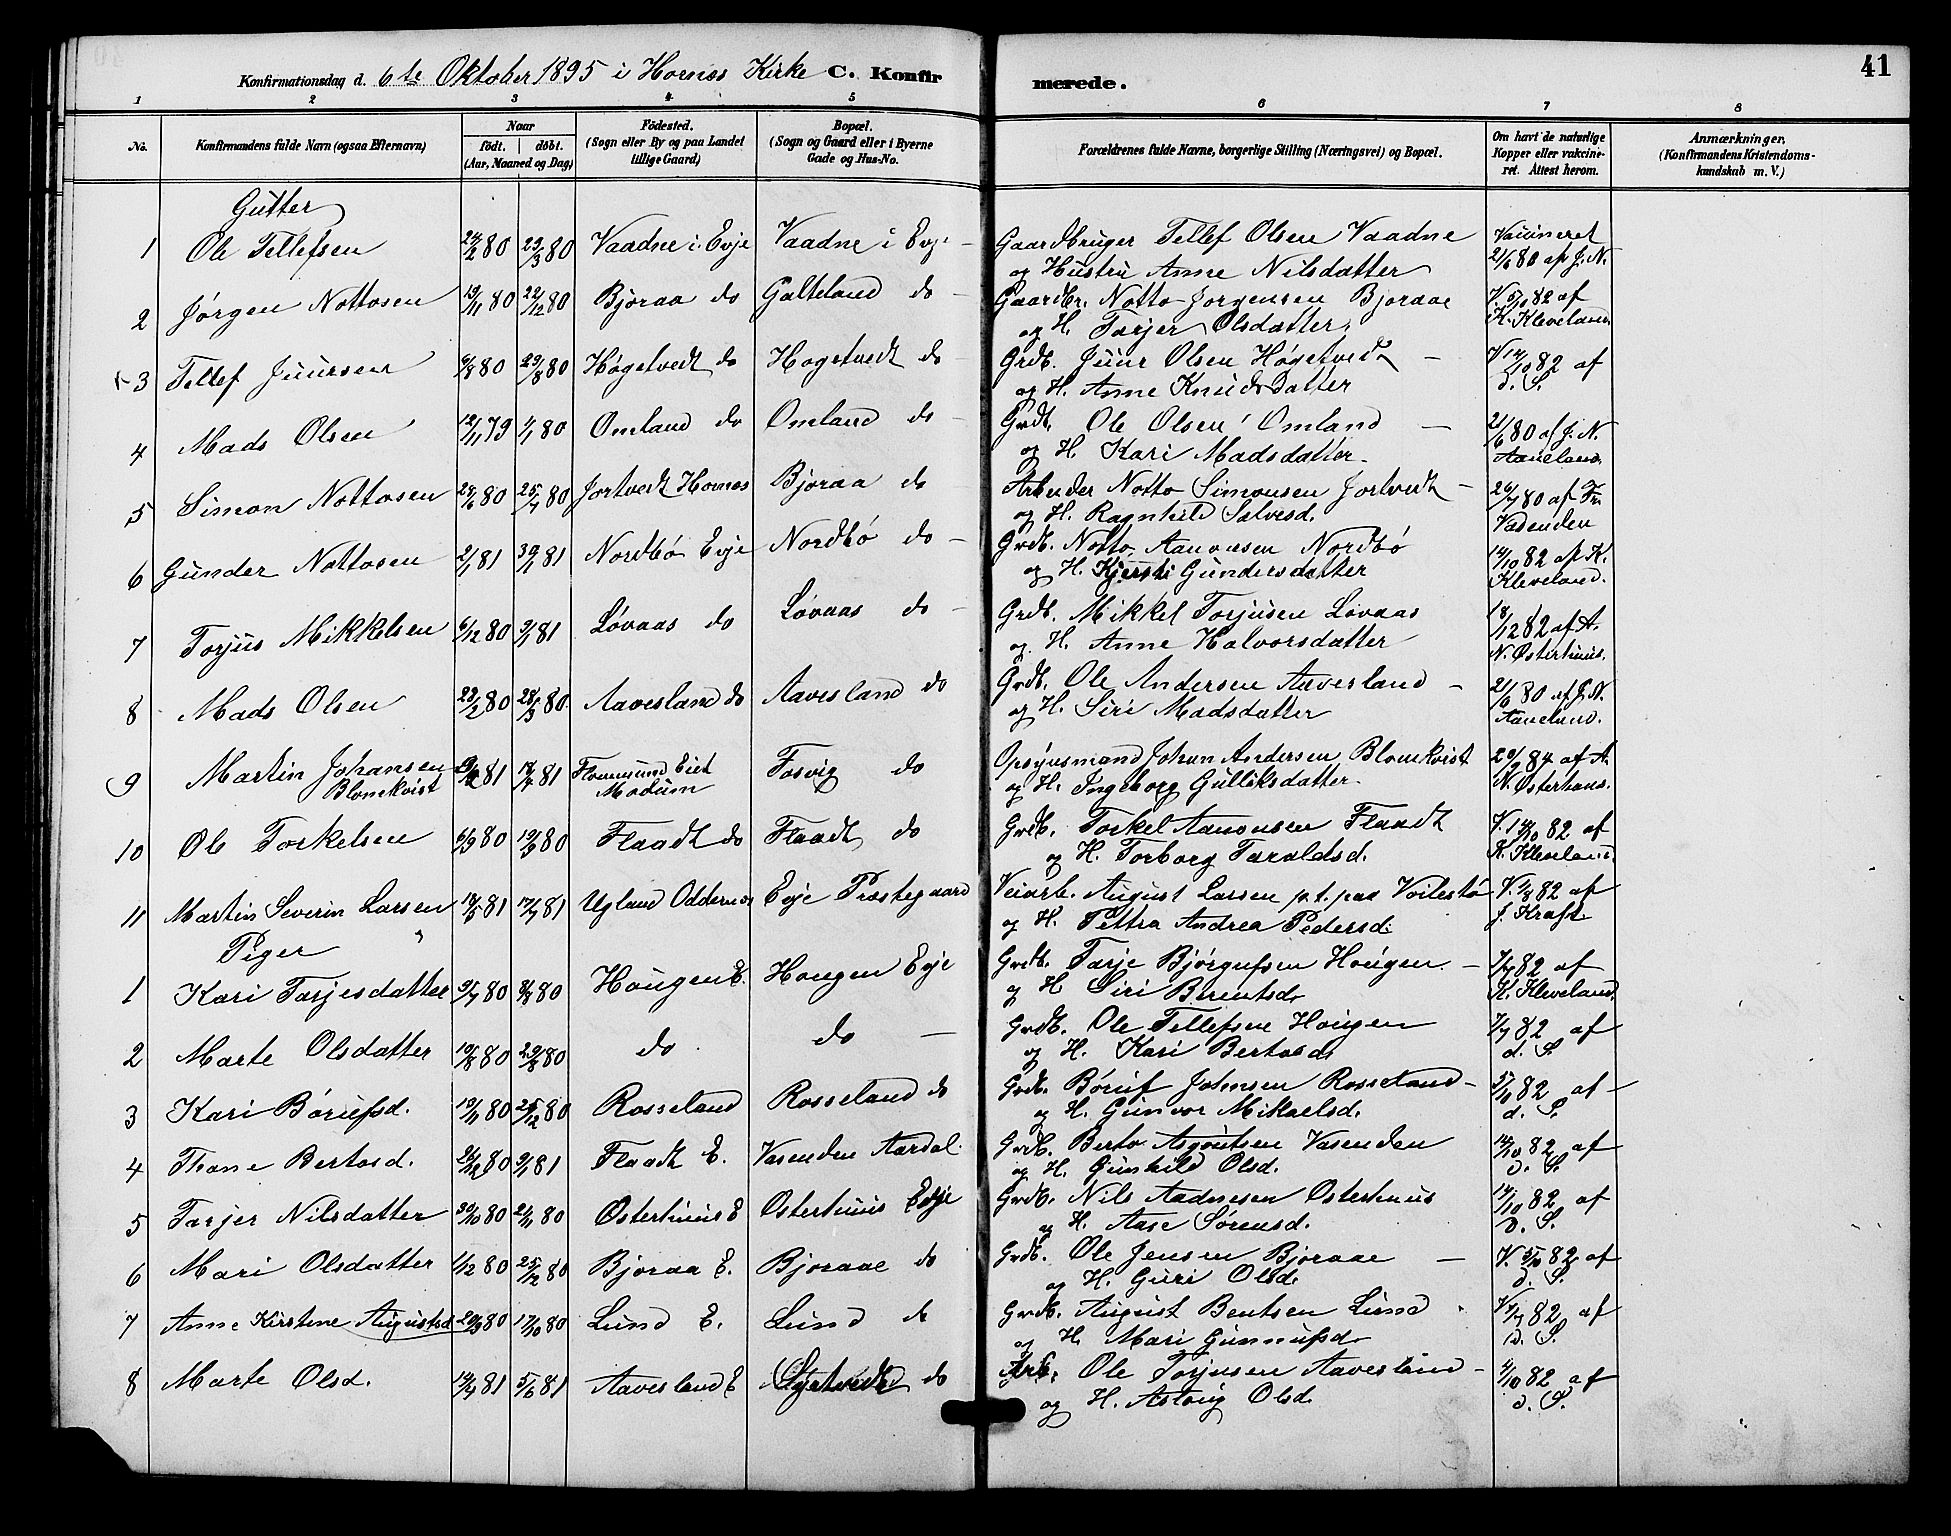 41
Konfirmationsdag d. 6te Oktober 1895 i Hornes Kirke C. Konfirmerede.
1 2 3 4 5 6 7 8
No. Konfirmandens fulde Navn (ogsaa Efternavn) Naar födt. döbt. (Aar, Maaned og Dag) Födested. (Sogn eller By og paa Landet tillige Gaard) Bopæl. (Sogn og Gaard eller i Byerne Gade og Hus-No. Forældrenes fulde Navne, borgerlige Stilling (Næringsvei) og Bopæl. Om havt de naturlige Kopper eller vakcineret. Attest herom. Anmærkninger, (Konfirmandens Kristendomskundskab m. V.)
Gutter
1 Ole Tellefsen 24/2 80 29/3 80 Vaadne i Evje Vaadne i Evje Gaardbruger Tellef Olsen Vaadne Vaccineret
og Hustru Anne Nilsdatter 21/6 80 af J. N.
2 Jørgen Nottosen 19/11 80 22/12 80 Bjoraa do Galteland do Gaardbr. Notto Jorgensen Bjoraae V. 5/10 82 af
og H. Tarjer Olsdatter K. Kleveland
3 Tellef Juursen 9/8 80 29/8 80 Høgetvedt do Hogetvedt do Grdb. Juur Olsen Høgetvedt V 14/10 82 af
og H. Anne Knudsdatter d. S.
4 Mads Olsen 12/11 79 1/1 80 Omland do Omland do Grdb. Ole Olsen Omland 21/6 80 af J. N.
og H. Kari Madsdatter Aaneland
5 Simon Nottosen 24/6 80 25/7 80 Jortvedt Hornes Bjoraa do Arbeider Notto Simonsen Jortvedt 26/7 80 af Fr.
og H. Ragnhild Salvesd. Vasenden
6 Gunder Nottosen 2/1 81 30/1 81 Nordbø Evje Nordbø do Grdb. Notto Aanonsen Nordbø 14/10 82 af K.
og H. Kjersti Gundersdatter Kleveland.
7 Torjus Mikkelsen 6/12 80 9/1 81 Løvaas do Løvaas do Grdb. Mikkel Torjusen Løvaas 18/12 82 af A.
og H. Anne Halvorsdatter N. Østerhuus.
8 Mads Olsen 23/2 80 28/3 80 Aavesland do Aavesland do Grdb. Ole Andersen Aavesland 21/6 80 af J. N.
og H. Siri Madsdatter Aaneland.
9 Martin Johansen 81 17/4 81 Fosvig do Opsynsmand Johan Andersen Blomkvist 20/9 84 af A.
Blomkvist Modum og H. Ingeborg Gulliksdatter N. Østerhuus.
10 Ole Torkelsen 6/9 80 19/9 80 Flaadt do Flaadt do Grdb. Torkel Aanonsen Flaadt V. 14/10 82 af
og H. Torborg Taraldsd. K. Kleveland.
11 Martin Severin Larsen 81 17/7 81 Ugland Oddernes Evje Præstegaard Veiarb. August Larsen p. t. paa V. 1/8 82 af
og H. Pettra Andrea Pedersd. J. Kraft
Piger
1 Kari Tarjesdatter 9/7 80 8/8 80 Hougen E. Hougen Evje Grdb. Tarje Bjørgufsen Hougen 7/7 82 af
og H Siri Berentsd. K. Kleveland
2 Marte Olsdatter 10/8 80 29/8 80 do do Grdb. Ole Tellefsen Hougen 7/7 82 af
og H. Kari Bertosd. d. S.
3 Kari Børufsd. 19/11 80 25/12 80 Rosseland Rosseland do Grdb. Børuf Johnsen Rosseland 5/10 82 af
og H. Gunvor Mikaelsd. d. S.
4 Thone Bertosd. 80 9/1 81 Flaadt E. Vasenden Aardal Grdb. Berto Asgoutsen Vasenden 14/10 82 af
og H. Gunhild Olsd. d. S.
5 Tarjer Nilsdatter 30/10 80 21/11 80 Østerhuus E Osterhuus Evje Grdb. Nils Aadnesen Osterhuus 14/10 82 af
og H. Aase Sørensd. d. S.
6 Mari Olsdatter 1/12 80 25/12 80 Bjoraa E. Bjoraae do Grdb. Ole Jensen Bjoraae V. 5/10 82 af
og H. Guri Olsd. d. S.
7 Anne Kirstine Augustsd 20/9 80 17/10 80 Lund E. Lund do Grdb. August Bentsen Lund V 7/7 82 af
og H. Mari Gunnufsd d. S.
8 Marte Olsd. 19/4 81 5/6 81 Aavesland E do Arb. Ole Torjusen Aavesland 4/10 82 af
og H. Astrug Olsd. d. S.